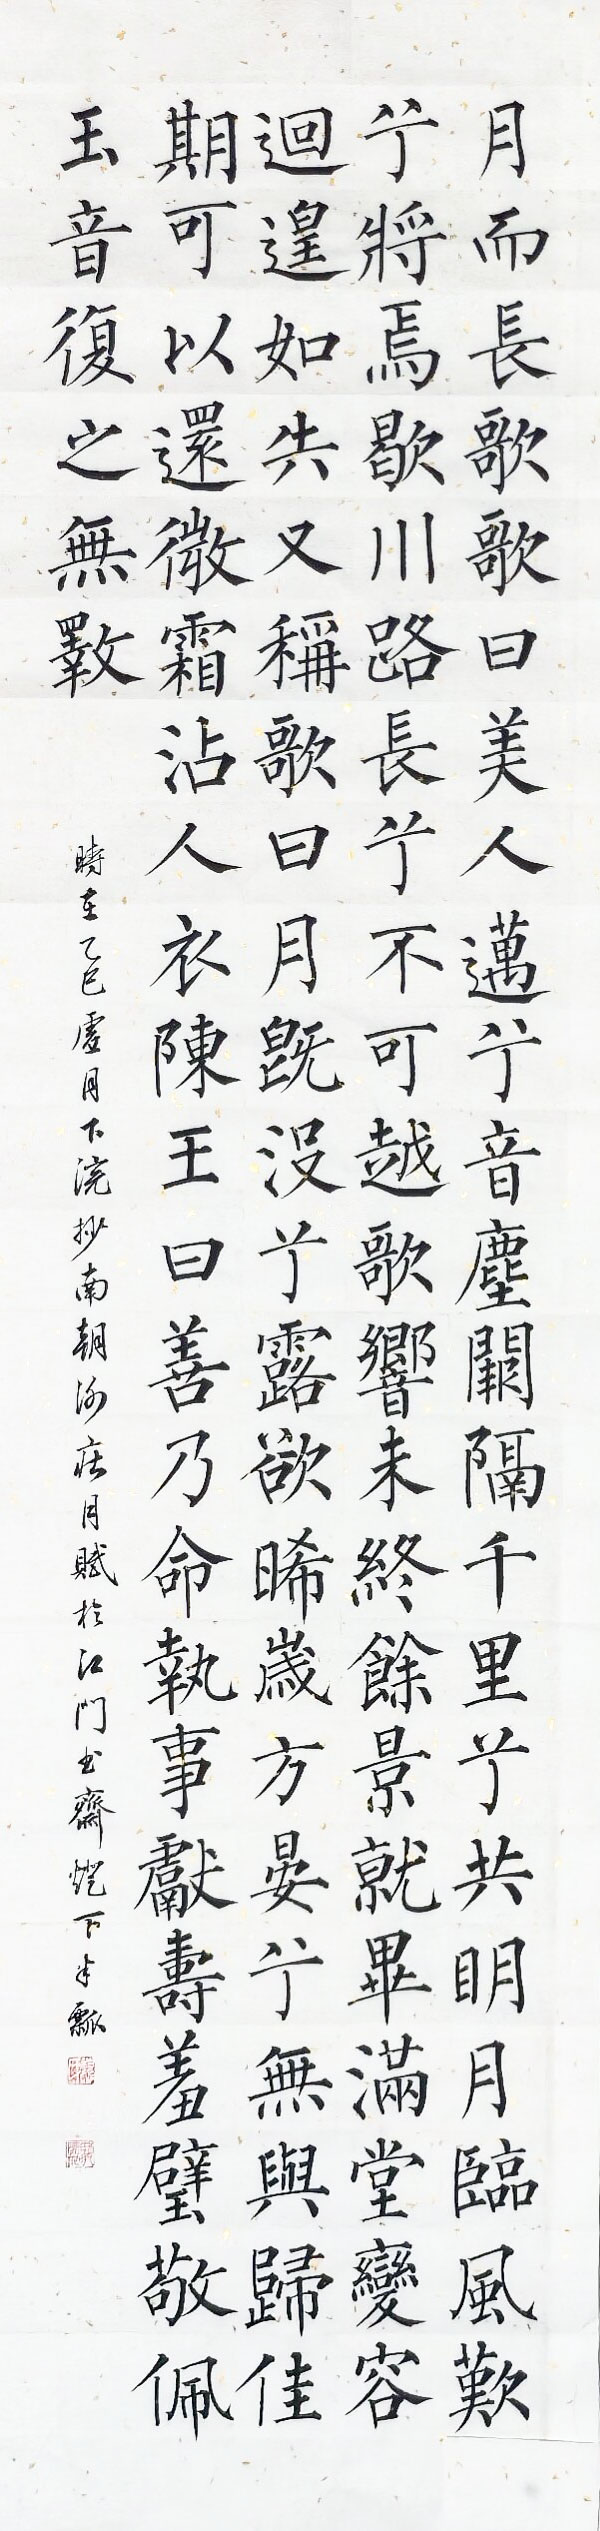 月而長歌歌曰美人邁兮音塵闕隔千里兮共明月臨風歎
兮將焉歇川路長兮不可越歌響未終餘景就畢滿堂變容
迴遑如失又稱歌曰月既沒兮露欲晞歲方晏兮無與歸佳
期可以還微霜沾人衣陳王曰善乃命執事獻壽羞璧敬佩
玉音復之無斁
時在乙巳處月下浣抄南朝謝莊月賦於江門书齋燈下半瓢